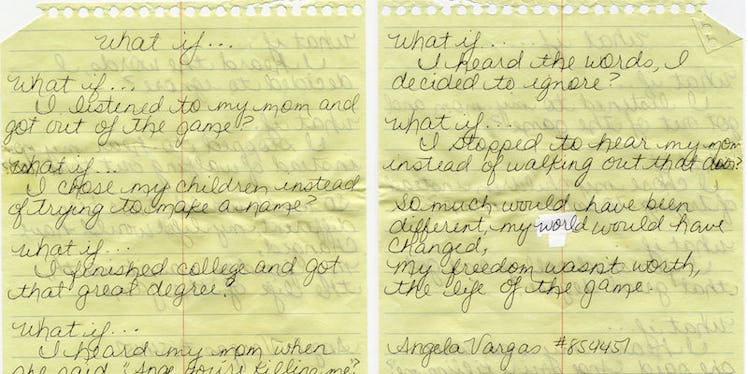 What if...
What if...
I listened to my mom and
got out of the game?
What if...
I chose my children instead
of trying to make a name?
What if...
I finished college and got
that great degree?
What if...
I heard my mom when
she said "Ange, you're killing me?
What if...
I heard the words, I
decided to ignore?
What if...
I stopped to hear my mom
instead of walking out that door?
So much would have been
different, my world would have
changed,
my freedom wasn't worth,
the life of the game.
Angela Vargas #854451